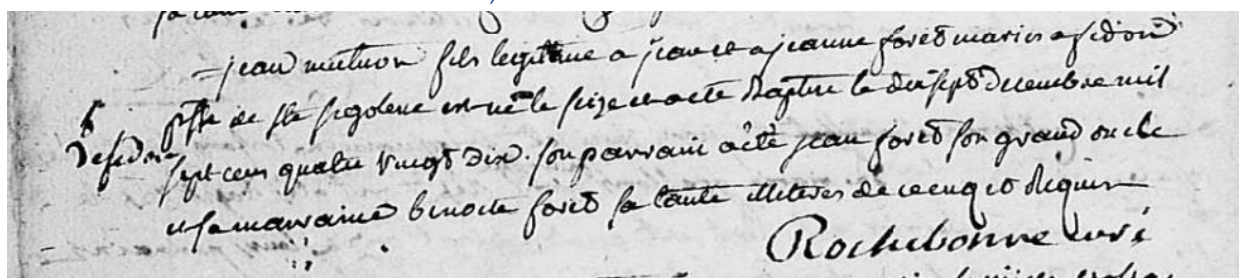 jean mulnon fils legitime a jean et a jeanne foret maries a sidon
psse de ste segolene est né le seize et a eté baptisé le dix sept decembre mil
sept cens quatre vingt dix. son parrain a été jean foret son grand oncle
et sa marraine benoite foret sa tante illiteres de ce enquis et requis
Rochebonne curé